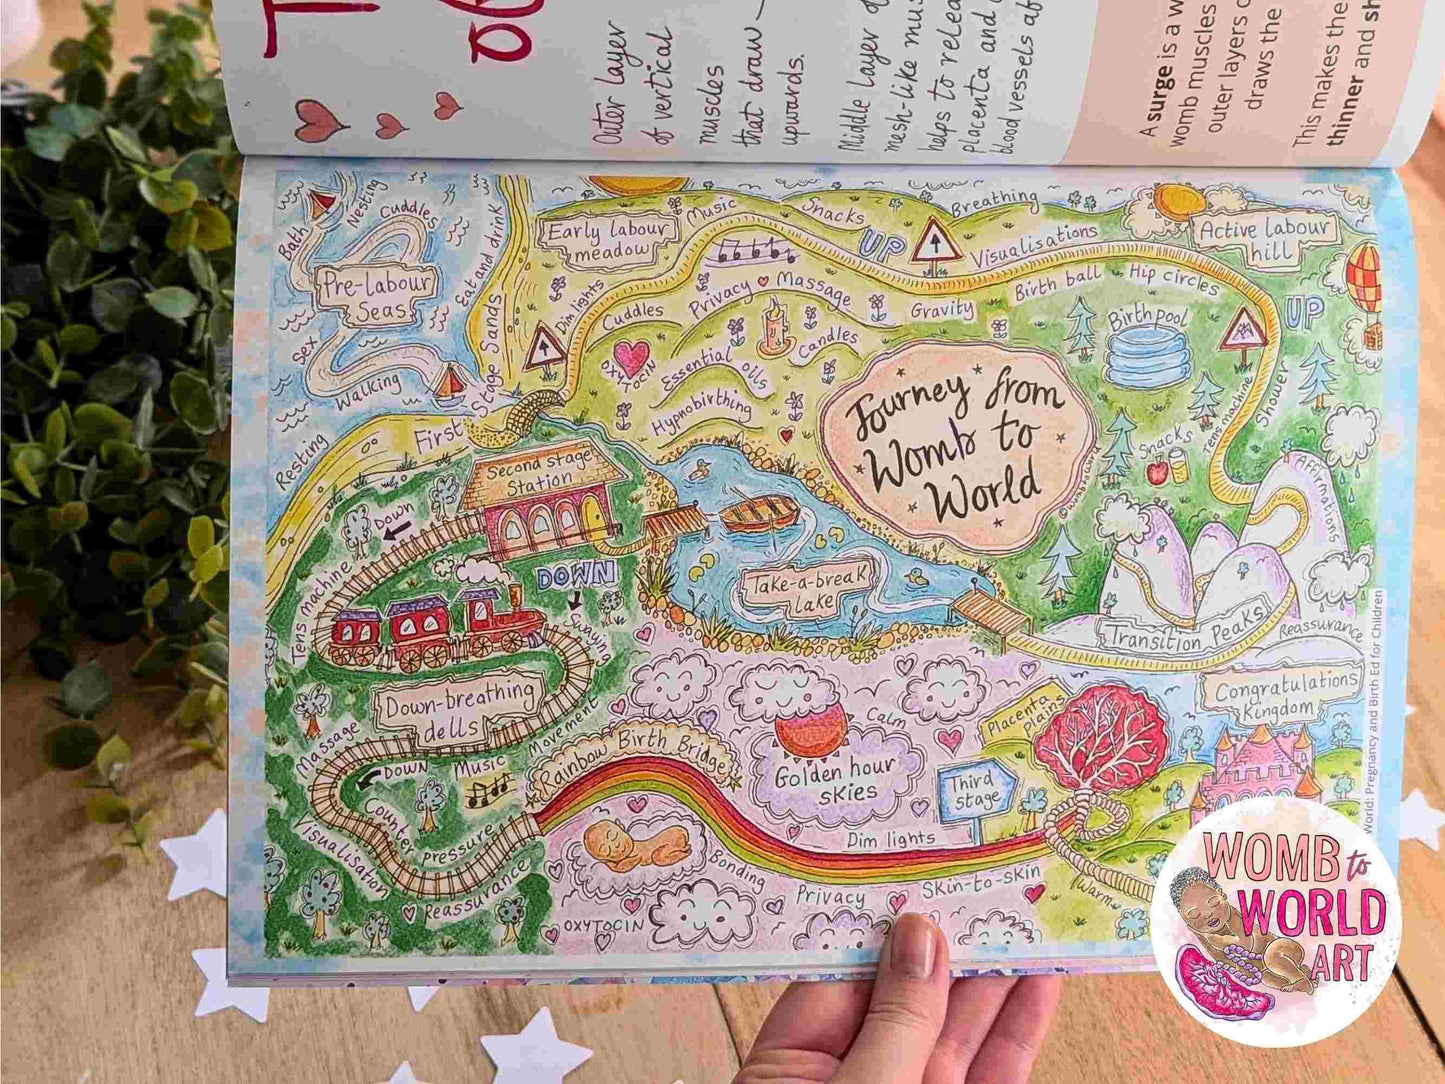 Outer Layer
of vertical
muscles
that draw
upwards.
Middle Layer
mesh-like
helps to
placenta and
blood vessels
A surge is a
womb muscles
outer layers
draws the
This makes the
thinner and
Journey from
Womb to
World
©womb2world
Bath
Nesting
Cuddles
Pre-labour
Seas
Eat and drink
Sex
Walking
Resting
First Stage Sands
Early labour
meadow
Dim lights
Music
Snacks
UP
Breathing
Visualisations
Active labour
hill
Cuddles
Privacy
Massage
Gravity
Birth ball
Hip circles
UP
OXYTOCIN
Essential
oils
Candles
Hypnobirthing
Birth pool
Snacks
Tens machine
Shower
Affirmations
Transition Peaks
Reassurance
Take-a-break
Lake
Second stage
Station
Down
DOWN
Tens machine
Down-breathing
dells
Movement
Massage
DOWN
Music
Counter pressure
Visualisation
Reassurance
Rainbow Birth Bridge
Golden hour
skies
Calm
Placenta
plains
Third
stage
Congratulations
Kingdom
Dim lights
Bonding
Privacy
Skin-to-skin
Warm
OXYTOCIN
World: Pregnancy and Birth Ed for Children
WOMB to
WORLD
ART